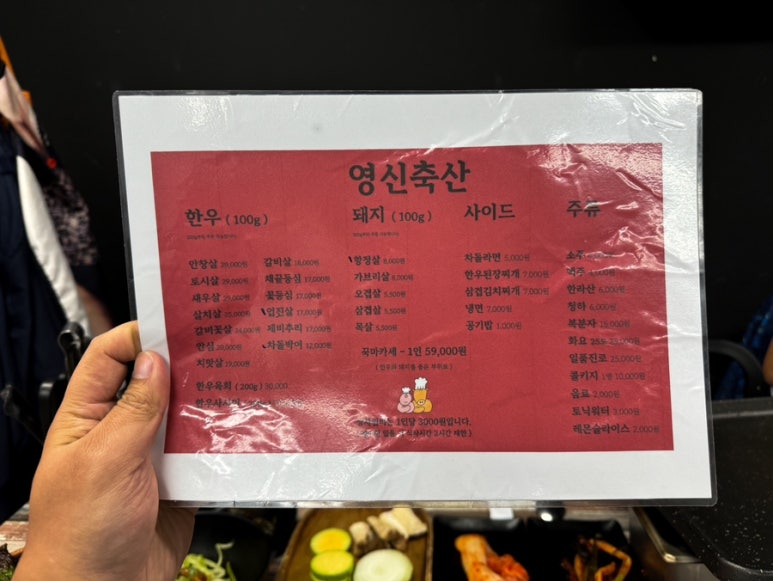 영신축산
한우 ( 100g )
안창살 29,000원
토시살 29,000원
새우살 29,000원
살치살
갈비꽃살
안심
치맛살 19,000원
한우육회 ( 200g ) 30,000
갈비살 18,000원
채끝등심 17,000원
꽃등심 17,000원
업진살 17,000원
제비추리 17,000원
차돌박이 12,000원
돼지 ( 100g )
항정살 8,000원
가브리살 8,000원
오겹살 5,500원
삼겹살 5,500원
목살 5,500원
꾹마카세 - 1인 59,000원
( 한우와 돼지를 좋은 부위로 )
1인당 3000원입니다.
2시간 제한 )
사이드
차돌라면 5,000원
한우된장찌개 7,000원
삼겹김치찌개 7,000원
냉면 7,000원
공기밥 1,000원
주류
소주
맥주
한라산 6,000원
청하 6,000원
복분자 15,000원
화요 25도
일품진로 25,000원
콜키지 1병 10,000원
음료 2,000원
토닉워터 3,000원
레몬슬라이스 2,000원